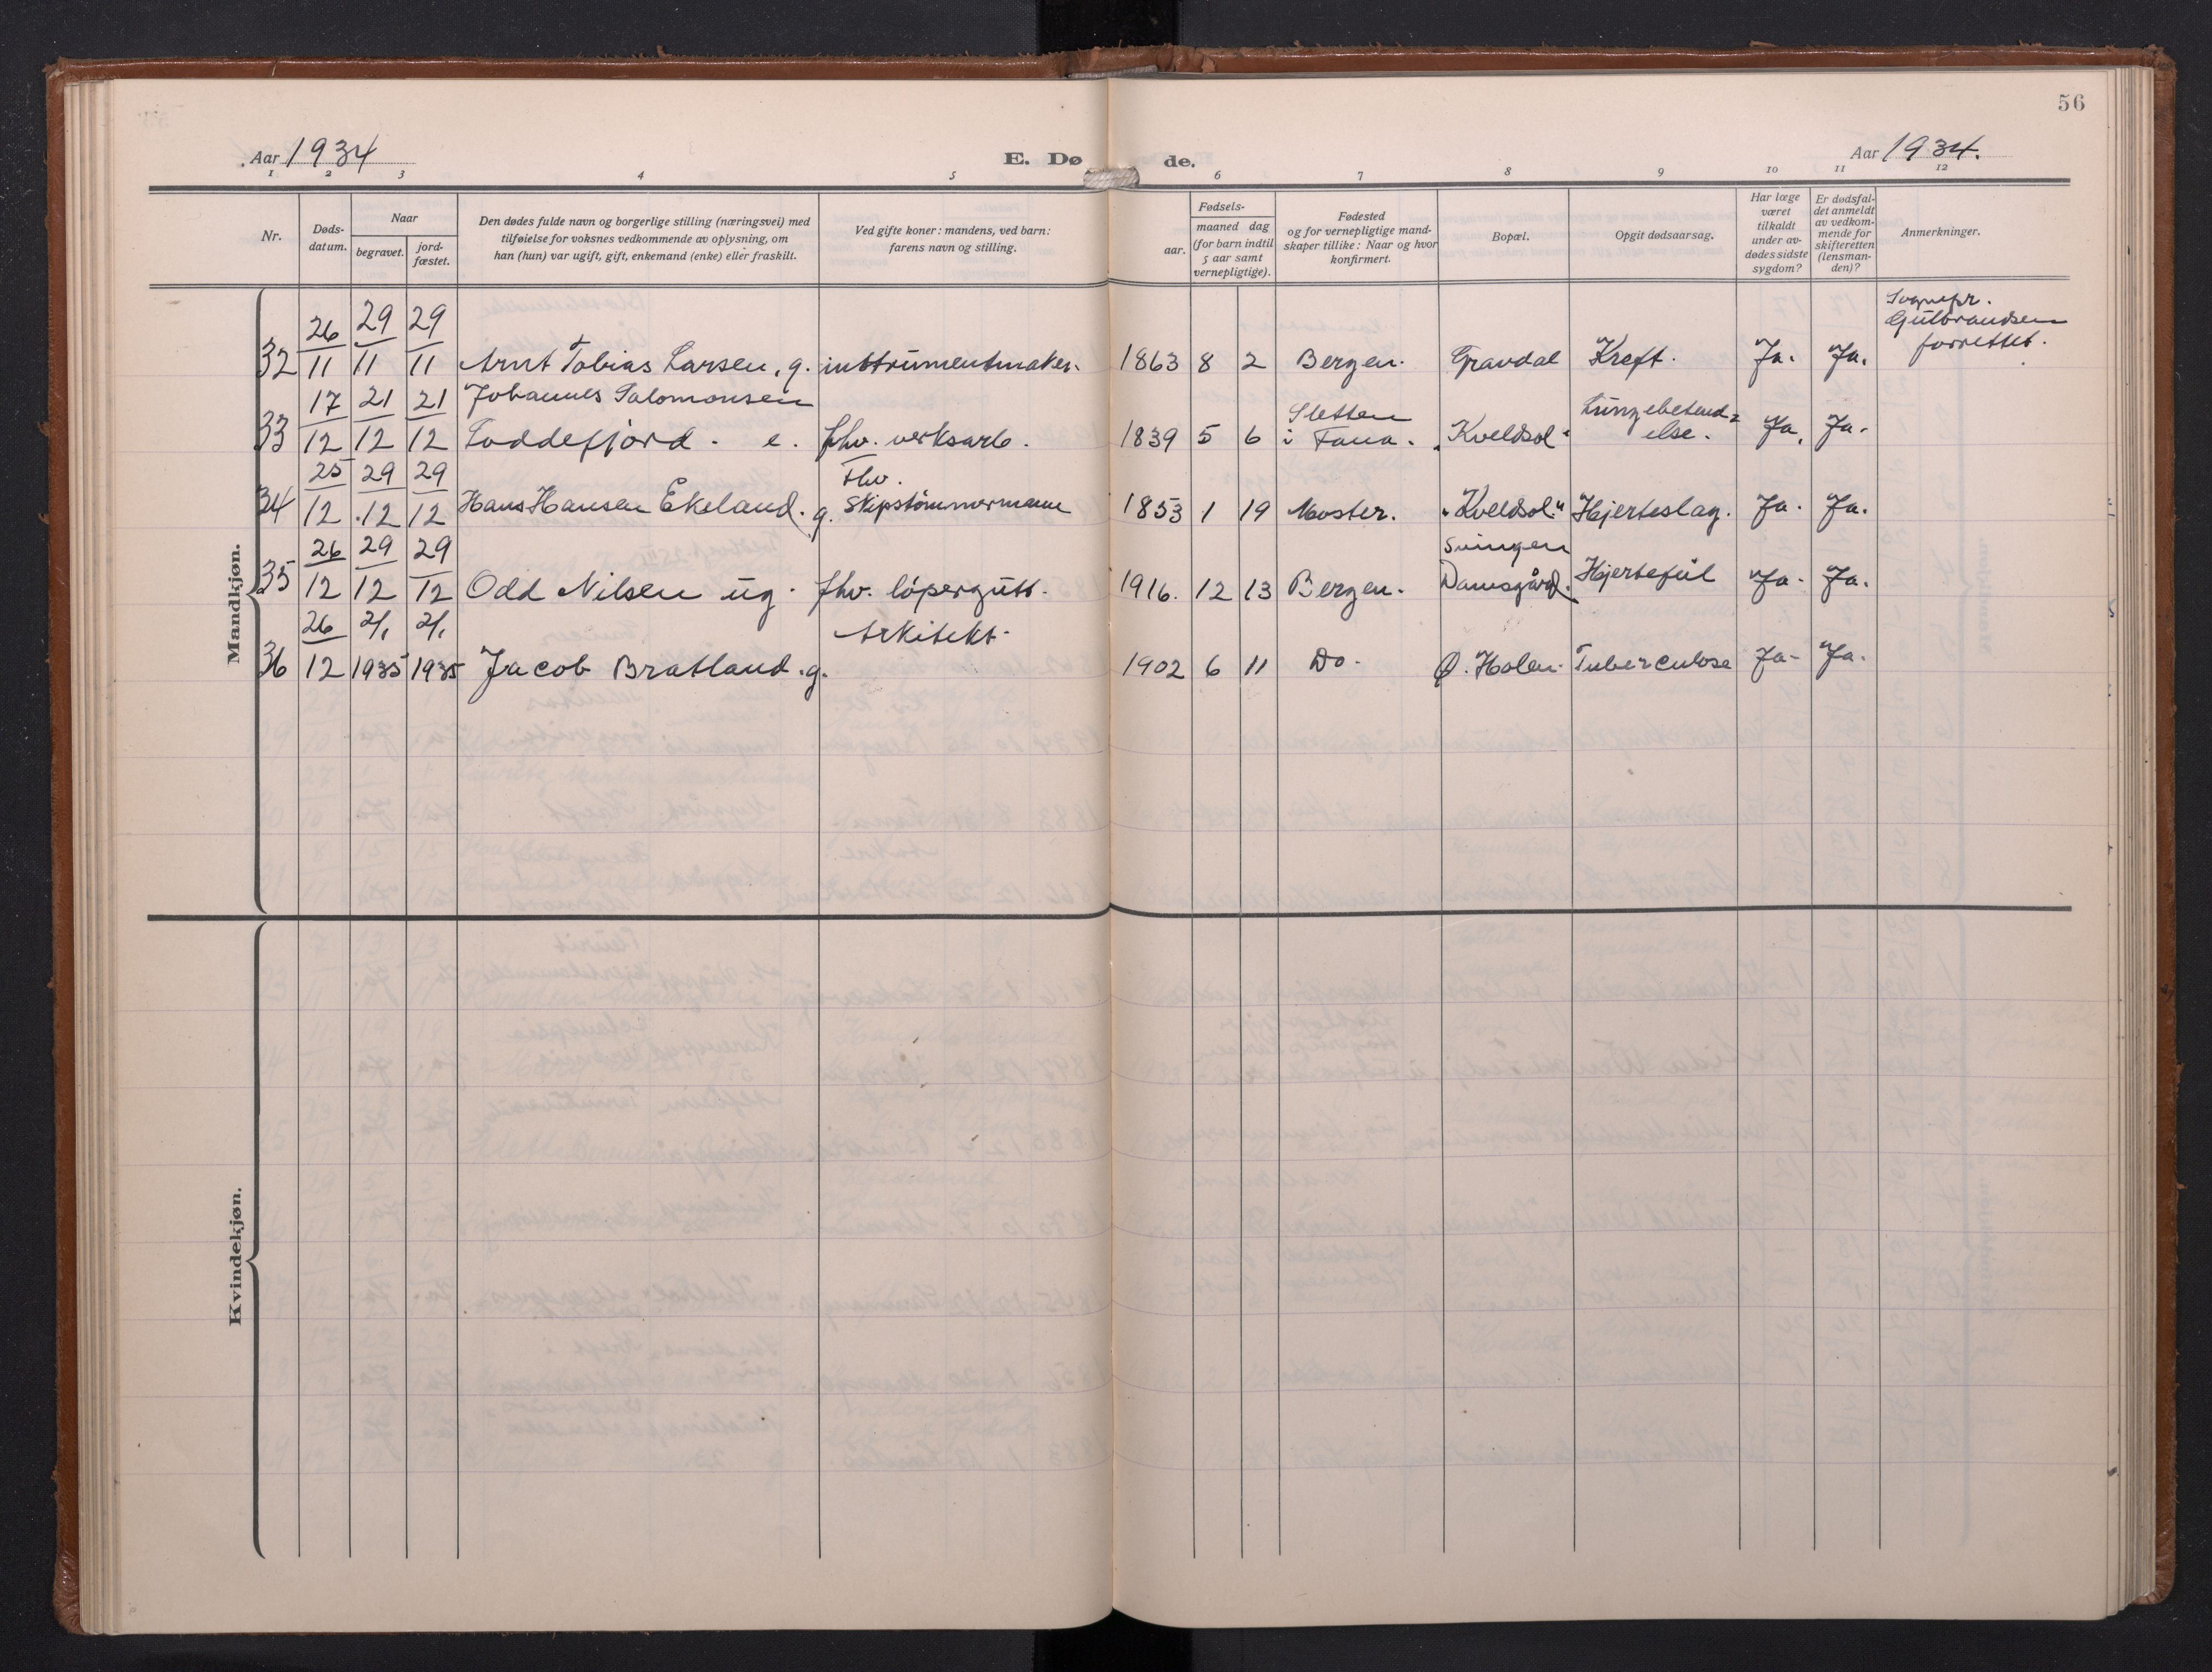 56
Aar 1934
E. Dø de.
Aar 1934.
1 2 3 4 5 6 7 8 9 10 11 12
Nr.
Døds-
datum.
Naar
begravet.
jord-
fæstet.
Den dødes fulde navn og borgerlige stilling (næringsvei) med
tilføielse for voksnes vedkommende av oplysning, om
han (hun) var ugift, gift, enkemand (enke) eller fraskilt.
Ved gifte koner: mandens, ved barn:
farens navn og stilling.
Fødsels-
aar.
maaned dag
(for barn indtil
5 aar samt
vernepligtige).
Fødested
og for vernepligtige mand-
skaper tillike: Naar og hvor
konfirmert.
Bopæl.
Opgit dødsaarsag.
Har læge
været
tilkaldt
under av-
dødes sidste
sygdom?
Er dødsfal-
det anmeldt
av vedkom-
mende for
skifteretten
(lensman-
den)?
Anmerkninger.
Mandkjøn.
26 29 29
32 11 11 11 Arnt Tobias Larsen, g. instrumentmaker. 1863 8 2 Bergen. Gravdal Kreft. Ja. Ja.
Sognepr.
Gulbrandsen
forrettet.
17 21 21 Johannes Salomonsen Sletten Lungebetend=
33 12 12 12 Loddefjord. e. fhv. verksarb. 1839 5 6 i Fana. "Kveldsol" else. Ja. Ja.
25 29 29 Fhv.
34 12 12 12 Hans Hansen Ekeland. g. Skipstømmermann 1853 1 19 Moster. "Kveldsol" Hjerteslag. Ja. Ja.
26 29 29 Svingen
35 12 12 12 Odd Nilsen ug. fhv. løpergutt. 1916. 12 13 Bergen. Damsgård. Hjertefeil Ja. Ja.
26 2/1 2/1 Arkitekt.
36 12 1935 1935 Jacob Bratland. g. 1902 6 11 Do. Ø. Holen. Tuberculose Ja. Ja.
Kvindekjøn.